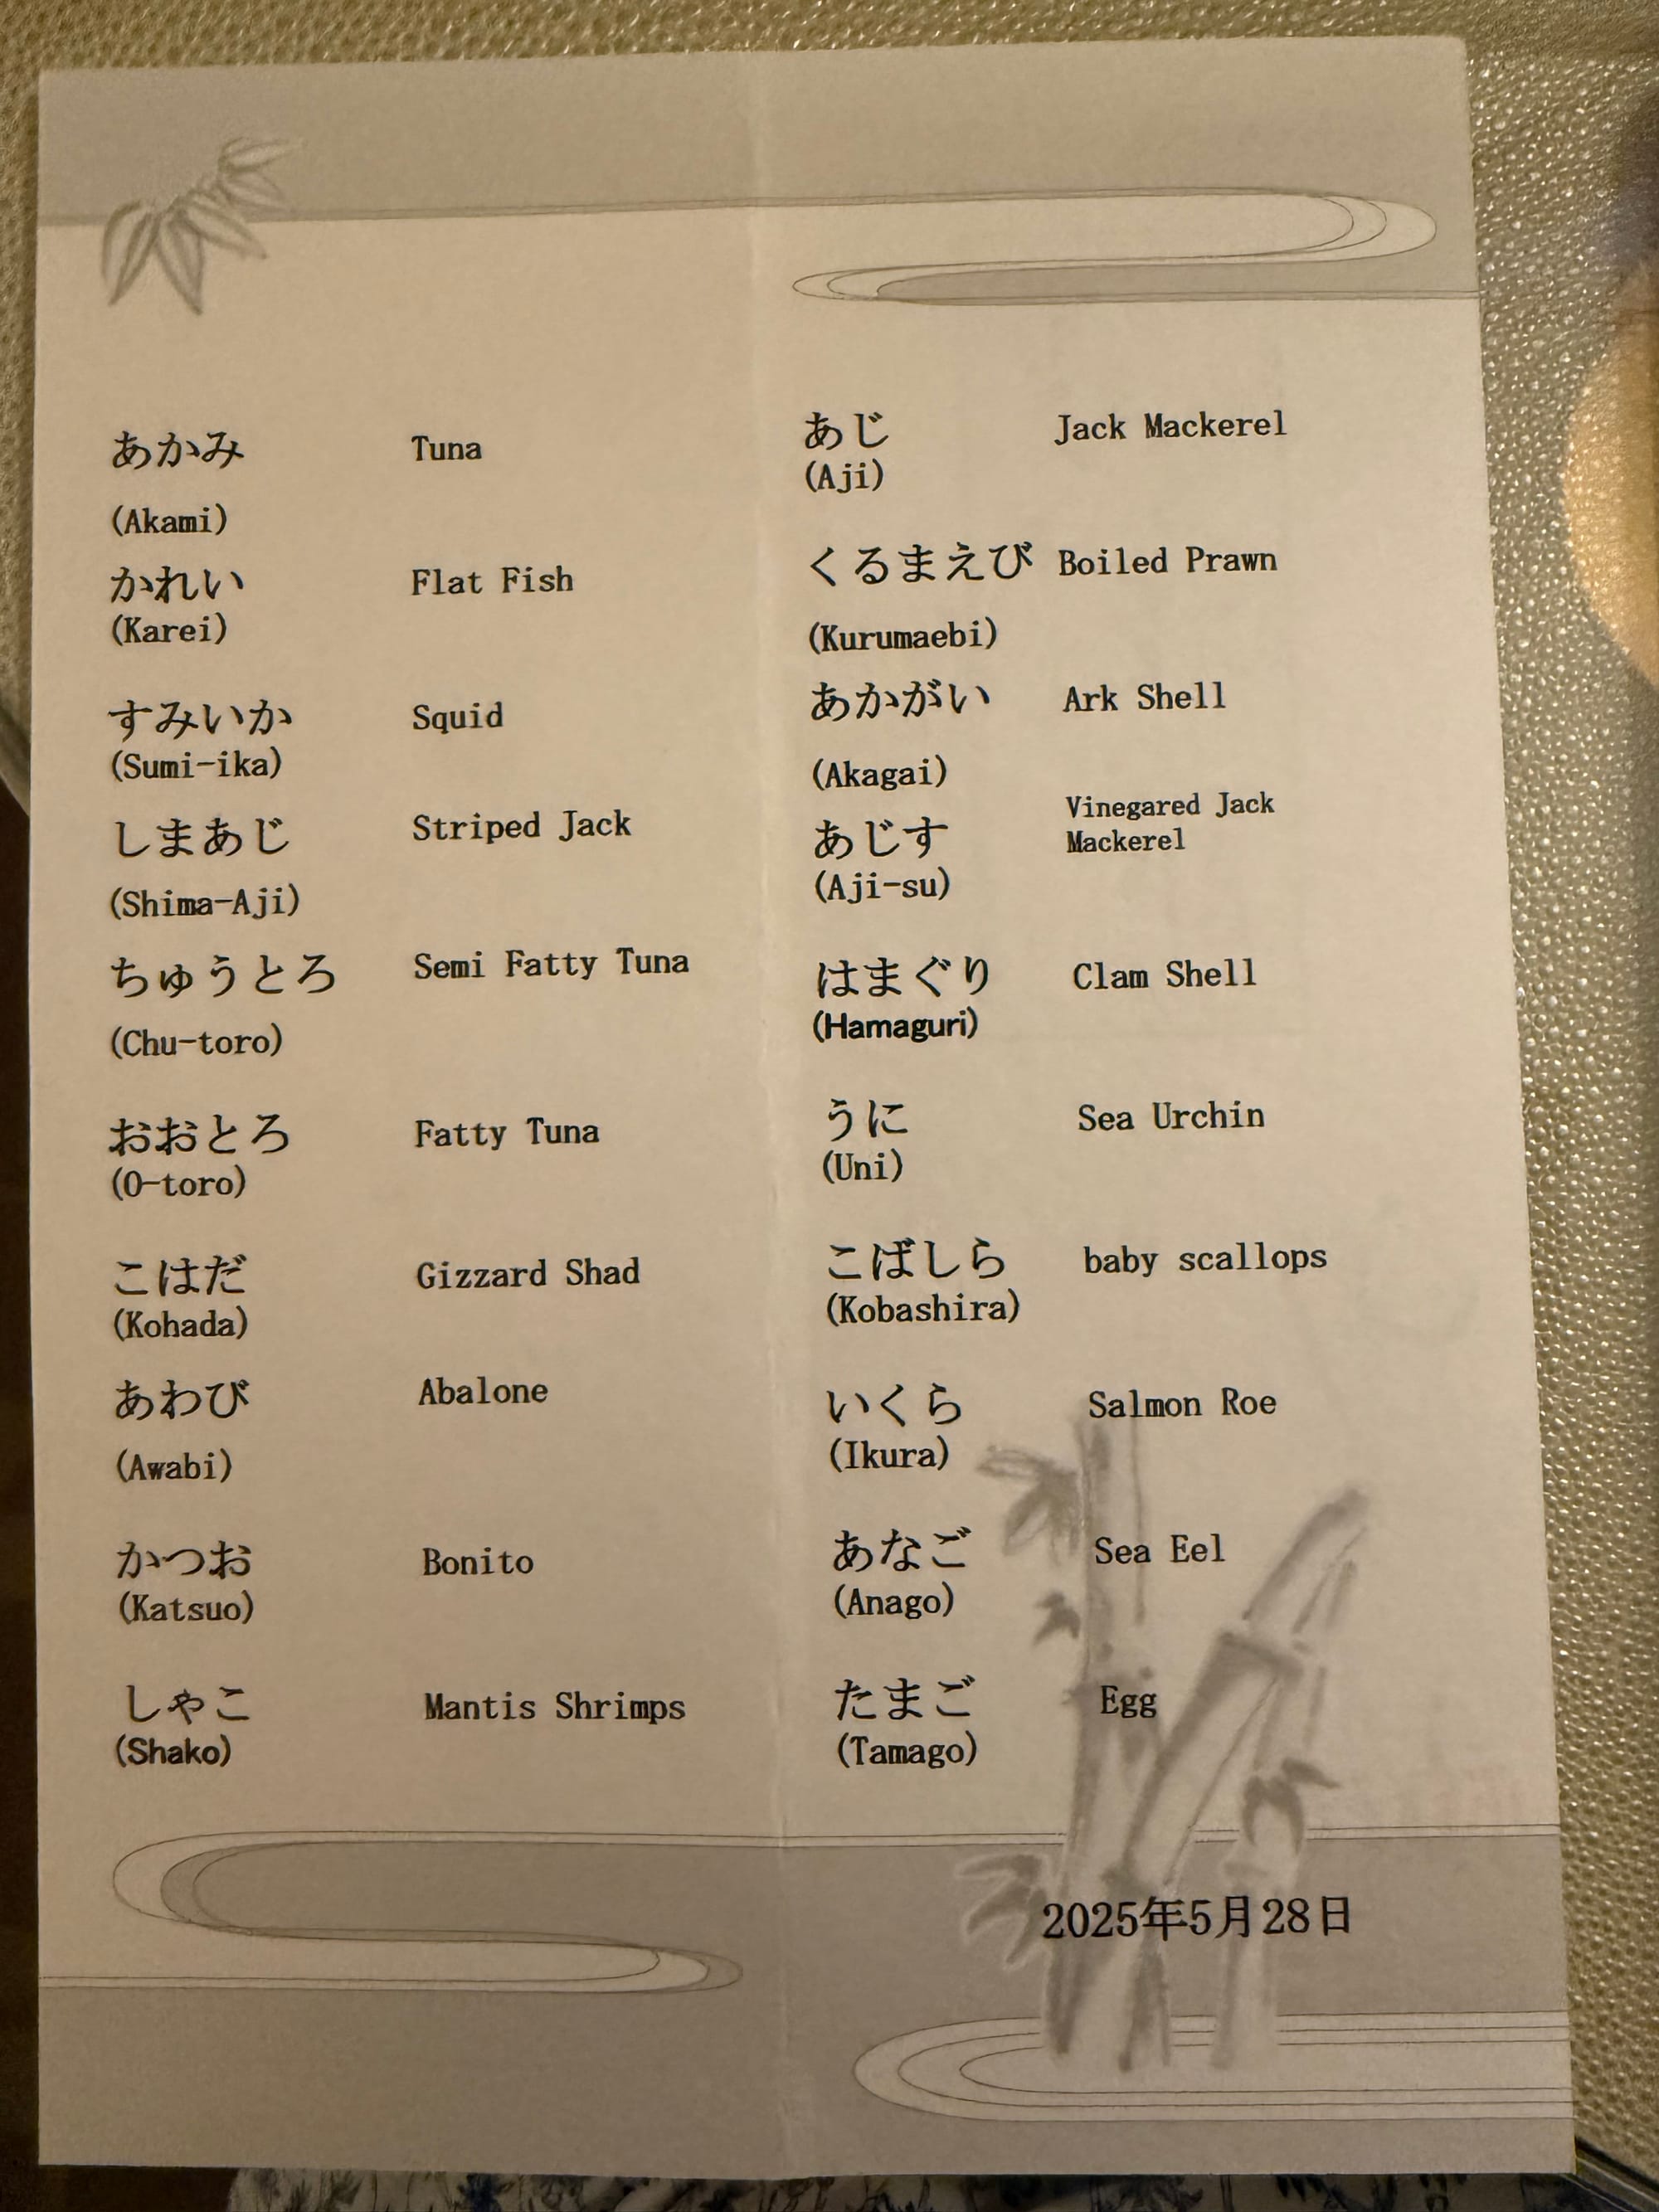 あかみ Tuna
(Akami)
かれい Flat Fish
(Karei)
すみいか Squid
(Sumi-ika)
しまあじ Striped Jack
(Shima-Aji)
ちゅうとろ Semi Fatty Tuna
(Chu-toro)
おおとろ Fatty Tuna
(O-toro)
こはだ Gizzard Shad
(Kohada)
あわび Abalone
(Awabi)
かつお Bonito
(Katsuo)
しゃこ Mantis Shrimps
(Shako)
あじ Jack Mackerel
(Aji)
くるまえび Boiled Prawn
(Kurumaebi)
あかがい Ark Shell
(Akagai)
Vinegared Jack
あじす Mackerel
(Aji-su)
はまぐり Clam Shell
(Hamaguri)
うに Sea Urchin
(Uni)
こばしら baby scallops
(Kobashira)
いくら Salmon Roe
(Ikura)
あなご Sea Eel
(Anago)
たまご Egg
(Tamago)
2025年5月28日